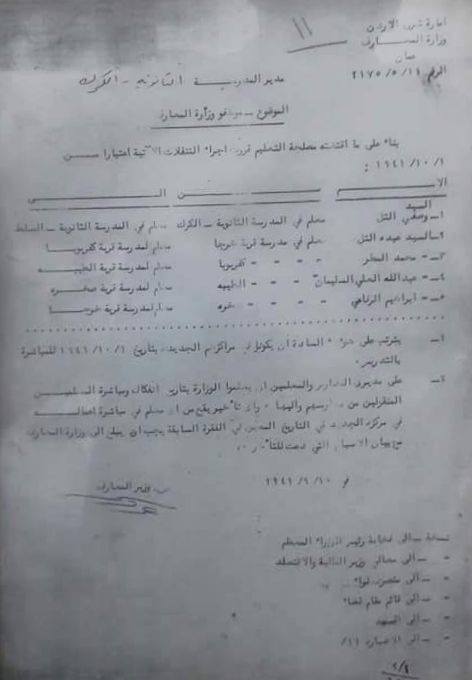 امارة شرق الاردن
وزارة المعارف
عمان
الرقم ٢١٧٥/٥/١١
١١
مدير المدرسة الثانوية - الكرك
الموضوع - موظفو وزارة المعارف
بناء على ما اقتضته مصلحة التعليم قررت اجراء التنقلات الآتية اعتبارا من
١٩٤١/١٠/١ :
الاسم من الى
السيد
١- وصفي التل معلم في المدرسة الثانوية - الكرك معلم في المدرسة الثانوية - السلط
٢- السيد عبده التل معلم في مدرسة قرية خرجا معلم لمدرسة قرية كفريوبا
٣- محمد - - - كفريوبا معلم لمدرسة قرية الطيبه
٤- عبدالله العلي السليمان - - - الطيبه معلم لمدرسة قرية صخره
٥- ابراهيم الرفاعي - - - صخره معلم لمدرسة قرية خرجا
١- يترتب على هؤلاء السادة ان يكونوا في مراكزهم الجديدة بتاريخ ١٩٤١/١٠/١ للمباشرة
بالتدريس
٢- على مديري المدارس والمعلمين ان يعلموا الوزارة بتاريخ انفكاك ومباشرة المعلمين
المنقولين من مدارسهم واليها واي تأخير يقع من اي معلم في مباشرة اعماله
في مركزه الجديد في التاريخ المعين في الفقرة السابقة يجب ان يبلغ الى وزارة المعارف
مع بيان الاسباب التي دعت للتأخير
في ١٩٤١/٩/١٠
وزير المعارف
نسخة - الى فخامة رئيس الوزراء المعظم
- - الى معالي وزير المالية والاقتصاد
- - الى متصرف لواء
- - الى قائم مقام قضاء
- - الى السيد
- - الى الاضبارة ١١/